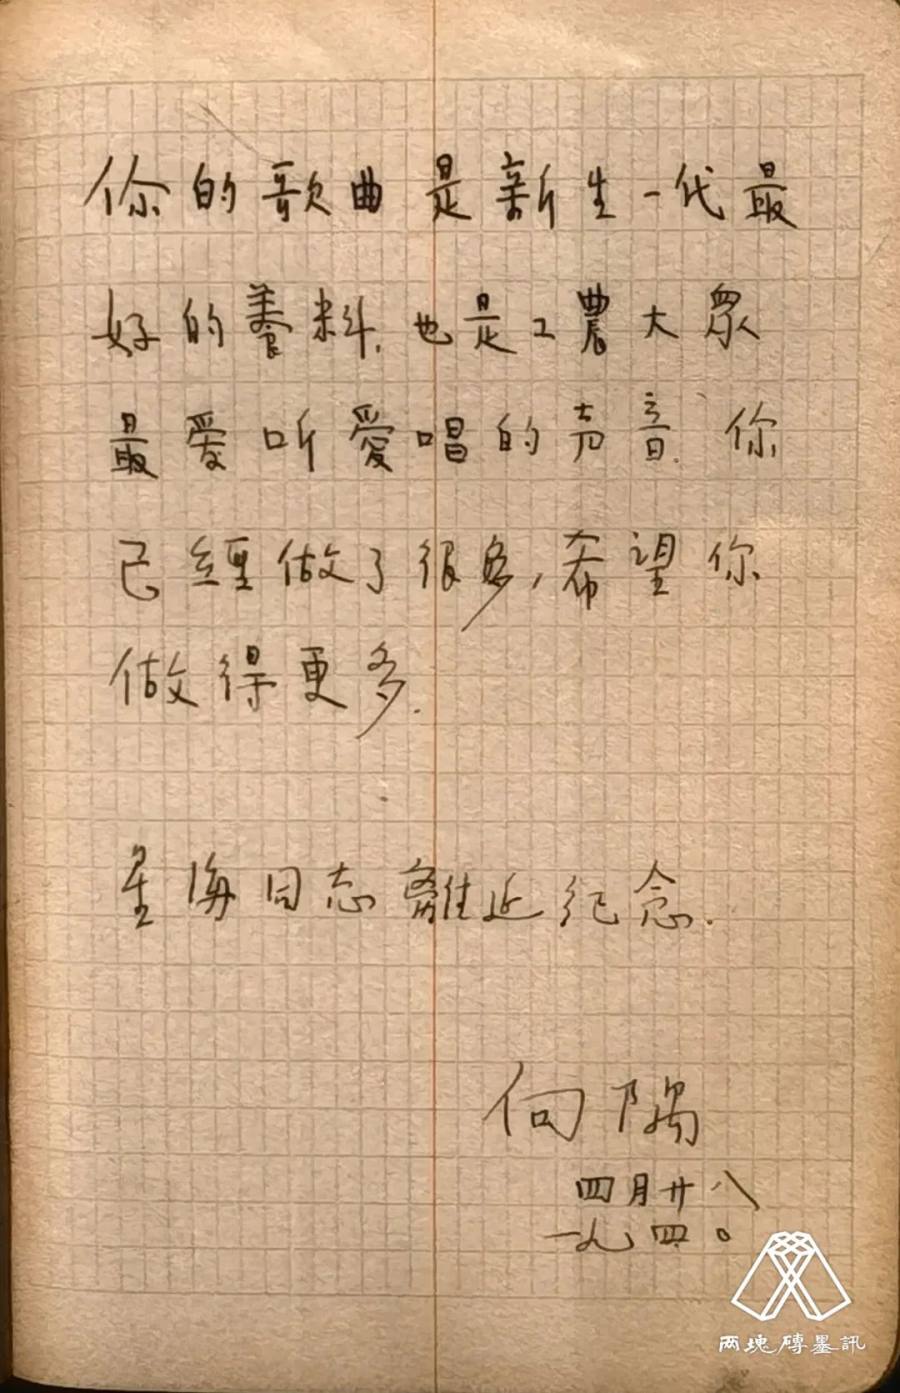 你的歌曲是新生一代最
好的養料,也是工農大眾
最爱听愛唱的声音.你
已經做了很多,希望你
做得更多.
星海同志離延纪念.
向隅
四月廿八
一九四〇
两塊磚墨訊